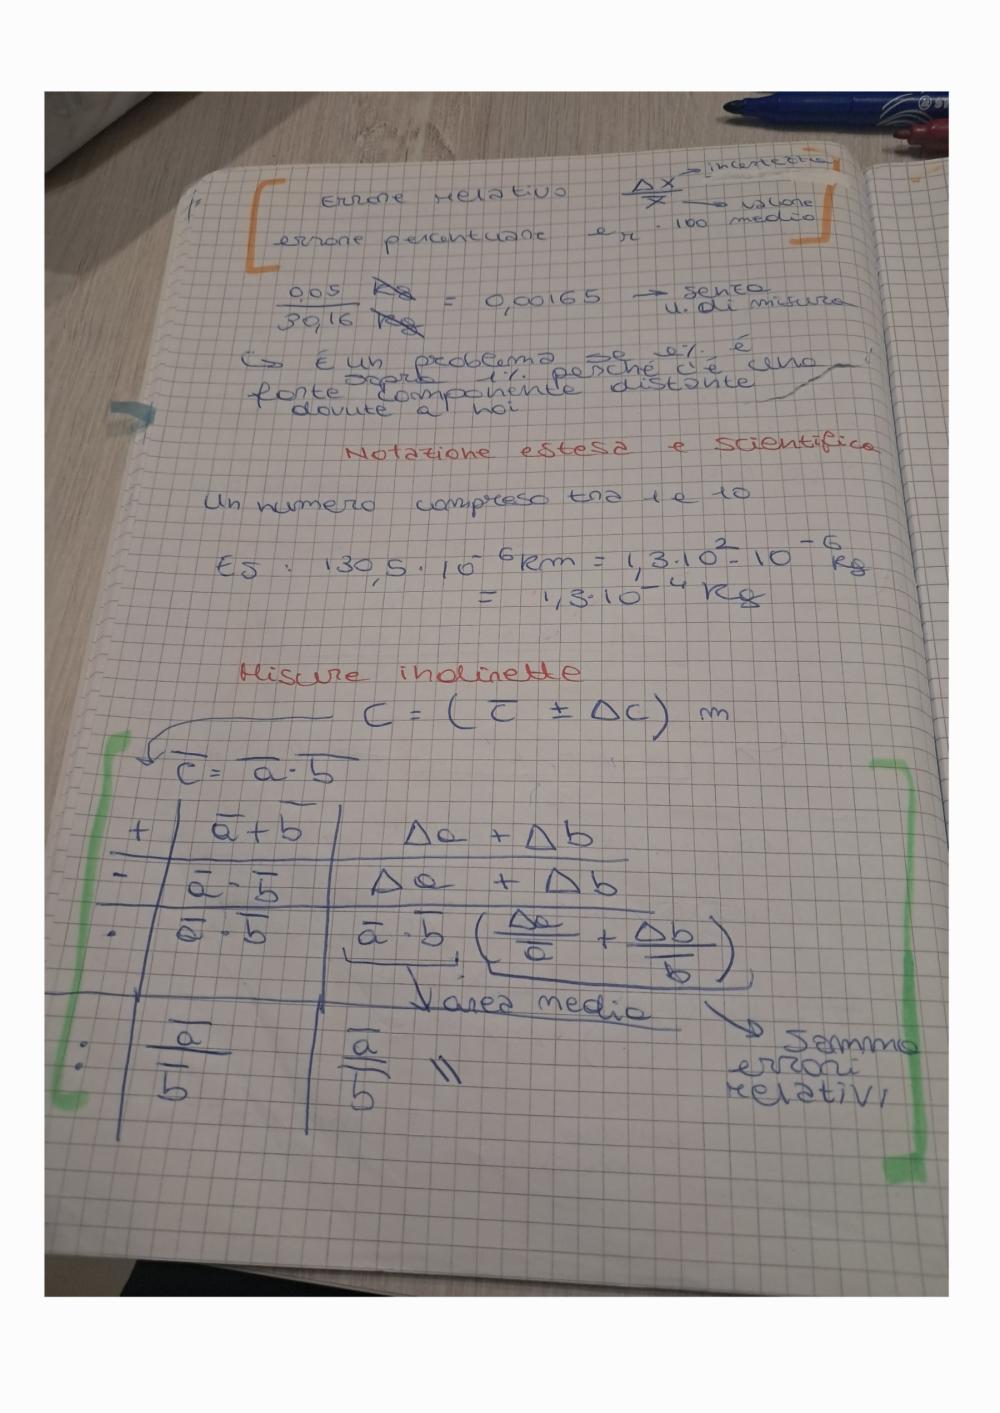 Errore relativo Δx/x̄ → incertezza → valore medio
errore percentuale er · 100
0,05 kg / 30,16 kg = 0,00165 → senza u. di misura
↳ È un problema se e% è
sopra 1% perché c'è una
forte componente distante
dovute a noi
Notazione estesa e scientifica
Un numero compreso tra 1 e 10
ES: 130,5 · 10⁻⁶ km = 1,3 · 10² · 10⁻⁶ kg
= 1,3 · 10⁻⁴ kg
Misure indirette
C = ( c̄ ± Δc ) m
c̄ = ā · b̄
+ | ā + b̄ | Δa + Δb
- | ā - b̄ | Δa + Δb
· | ā · b̄ | ā · b̄ ( Δa/ā + Δb/b̄ )
↘ area media
→ Sommo
errori
relativi
: | ā/b̄ | ā/b̄ \\